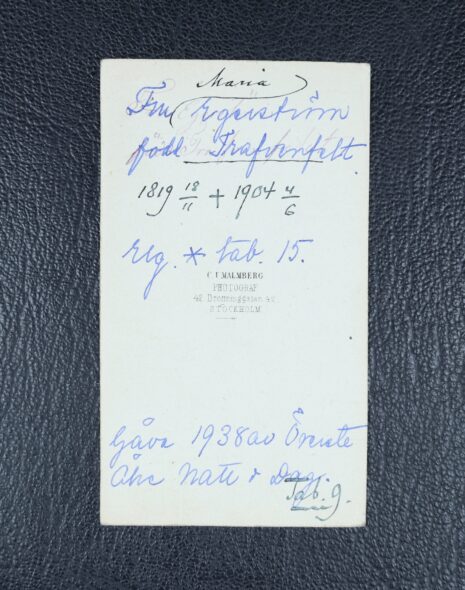 Maria
Fru Egerström
född Trafvenfelt.
1819 18/11 + 1904 4/6
reg. * tab. 15.
C. F. MALMBERG
PHOTOGRAF
42 Drottninggatan 42
STOCKHOLM
Gåva 1938 av Överste
Åke Natt o Dag.
Tab. 9.